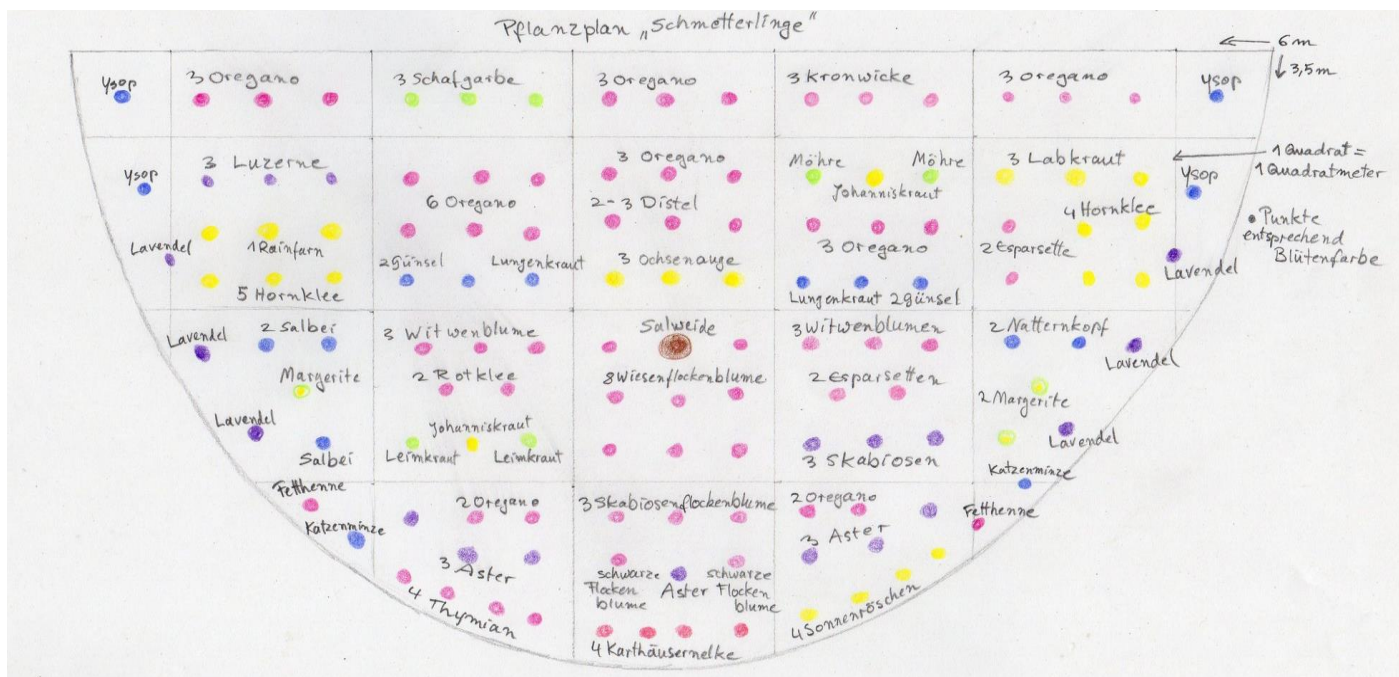 Pflanzplan „Schmetterlinge"
← 6m
↓ 3,5m
Ysop
3 Oregano
3 Schafgarbe
3 Oregano
3 Kronwicke
3 Oregano
Ysop
1 Quadrat =
1 Quadratmeter
• Punkte
entsprechend
Blütenfarbe
Ysop
Lavendel
3 Luzerne
1 Rainfarn
5 Hornklee
6 Oregano
2 Günsel
Lungenkraut
3 Oregano
2-3 Distel
3 Ochsenauge
Möhre
Möhre
Johanniskraut
3 Oregano
Lungenkraut
2 Günsel
3 Labkraut
4 Hornklee
2 Esparsette
Ysop
Lavendel
Lavendel
2 Salbei
Margerite
Lavendel
Salbei
3 Witwenblume
2 Rotklee
Johanniskraut
Leimkraut
Leimkraut
Salweide
8 Wiesenflockenblume
3 Witwenblumen
2 Esparsetten
3 Skabiosen
2 Natternkopf
Lavendel
2 Margerite
Lavendel
Katzenminze
Fetthenne
Katzenminze
2 Oregano
3 Aster
4 Thymian
3 Skabiosenflockenblume
schwarze
Flocken
blume
Aster
schwarze
Flocken
blume
4 Karthäusernelke
2 Oregano
3 Aster
4 Sonnenröschen
Fetthenne